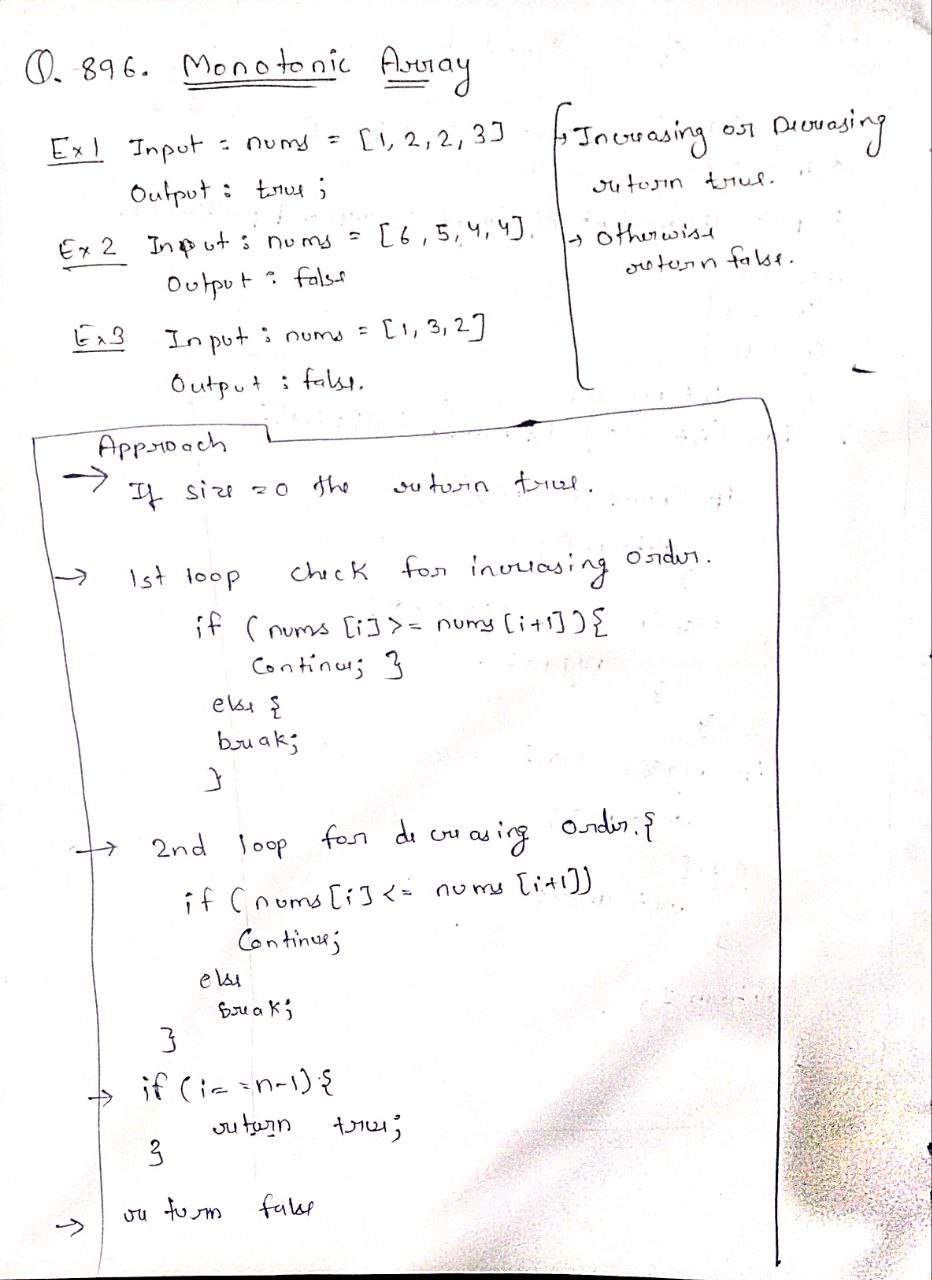 Q. 896. Monotonic Array
Ex1 Input : nums = [1, 2, 2, 3]
Output : true ;
Ex 2 Input : nums = [6, 5, 4, 4].
Output : false
Ex3 Input : nums = [1, 3, 2]
Output : false.
→ Increasing or Decreasing
return true.
→ otherwise
return false.
Approach
→ If size = 0 the return true.
→ 1st loop check for increasing order.
if (nums [i] >= nums [i+1]) {
Continue; }
else {
break;
}
→ 2nd loop for decreasing order. {
if (nums [i] <= nums [i+1])
Continue;
else
break;
}
→ if (i==n-1) {
return true;
}
→ return false